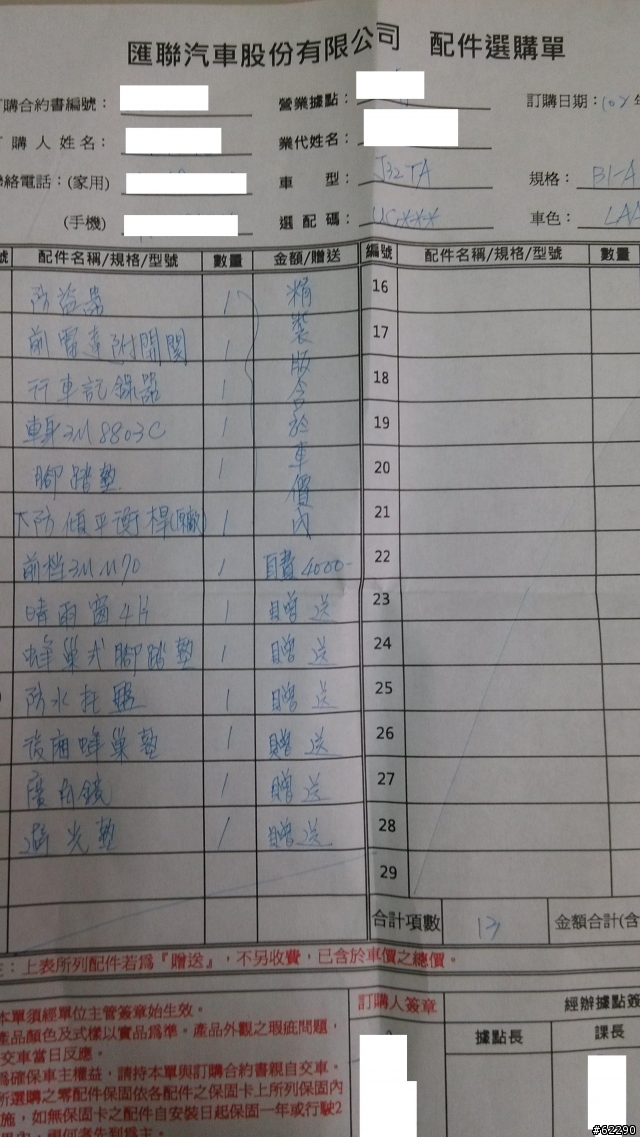 匯聯汽車股份有限公司 配件選購單
訂購合約書編號： 營業據點： 訂購日期：
訂購人姓名： 業代姓名：
聯絡電話：(家用) 車 型：J32TA 規格：B1-A
(手機) 選配碼：UC*** 車色：
號 配件名稱/規格/型號 數量 金額/贈送 編號 配件名稱/規格/型號 數量
防盜器 1 精裝版含於車價內 16
前雷達附開關 1 17
行車記錄器 1 18
車身3M 8803C 1 19
腳踏墊 1 20
下防傾平衡桿(原廠) 1 21
前檔3M M70 1 自費4000- 22
晴雨窗4片 1 贈送 23
蜂巢式腳踏墊 1 贈送 24
防水托盤 1 贈送 25
後廂蜂巢墊 1 贈送 26
廣角鏡 1 贈送 27
避光墊 1 贈送 28
29
合計項數 13 金額合計(含
：上表所列配件若為『贈送』，不另收費，已含於車價之總價。
本單須經單位主管簽章始生效。 訂購人簽章 經辦據點簽
產品顏色及式樣以實品為準。產品外觀之瑕疵問題， 據點長 課長
交車當日反應。
為確保車主權益，請持本單與訂購合約書親自交車。
所選購之零配件保固依各配件之保固卡上所列保固內
施，如無保固卡之配件自安裝日起保固一年或行駛2
#62290